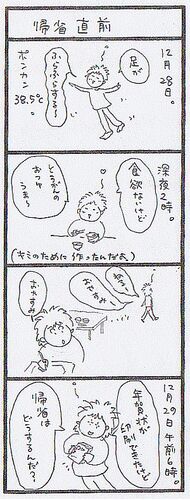 帰省直前
12月28日。
足が
ふらふらする～
ポンカン
38.5℃
。
深夜2時。
食欲ないけど
とうがんの
おつゆ
うまー
(キミのために作ったんだよ)
ねろ！
おやすみ
おやすみ
12月29日午前6時。
年賀状が
印刷できたけど
帰省は
どうするんだ？